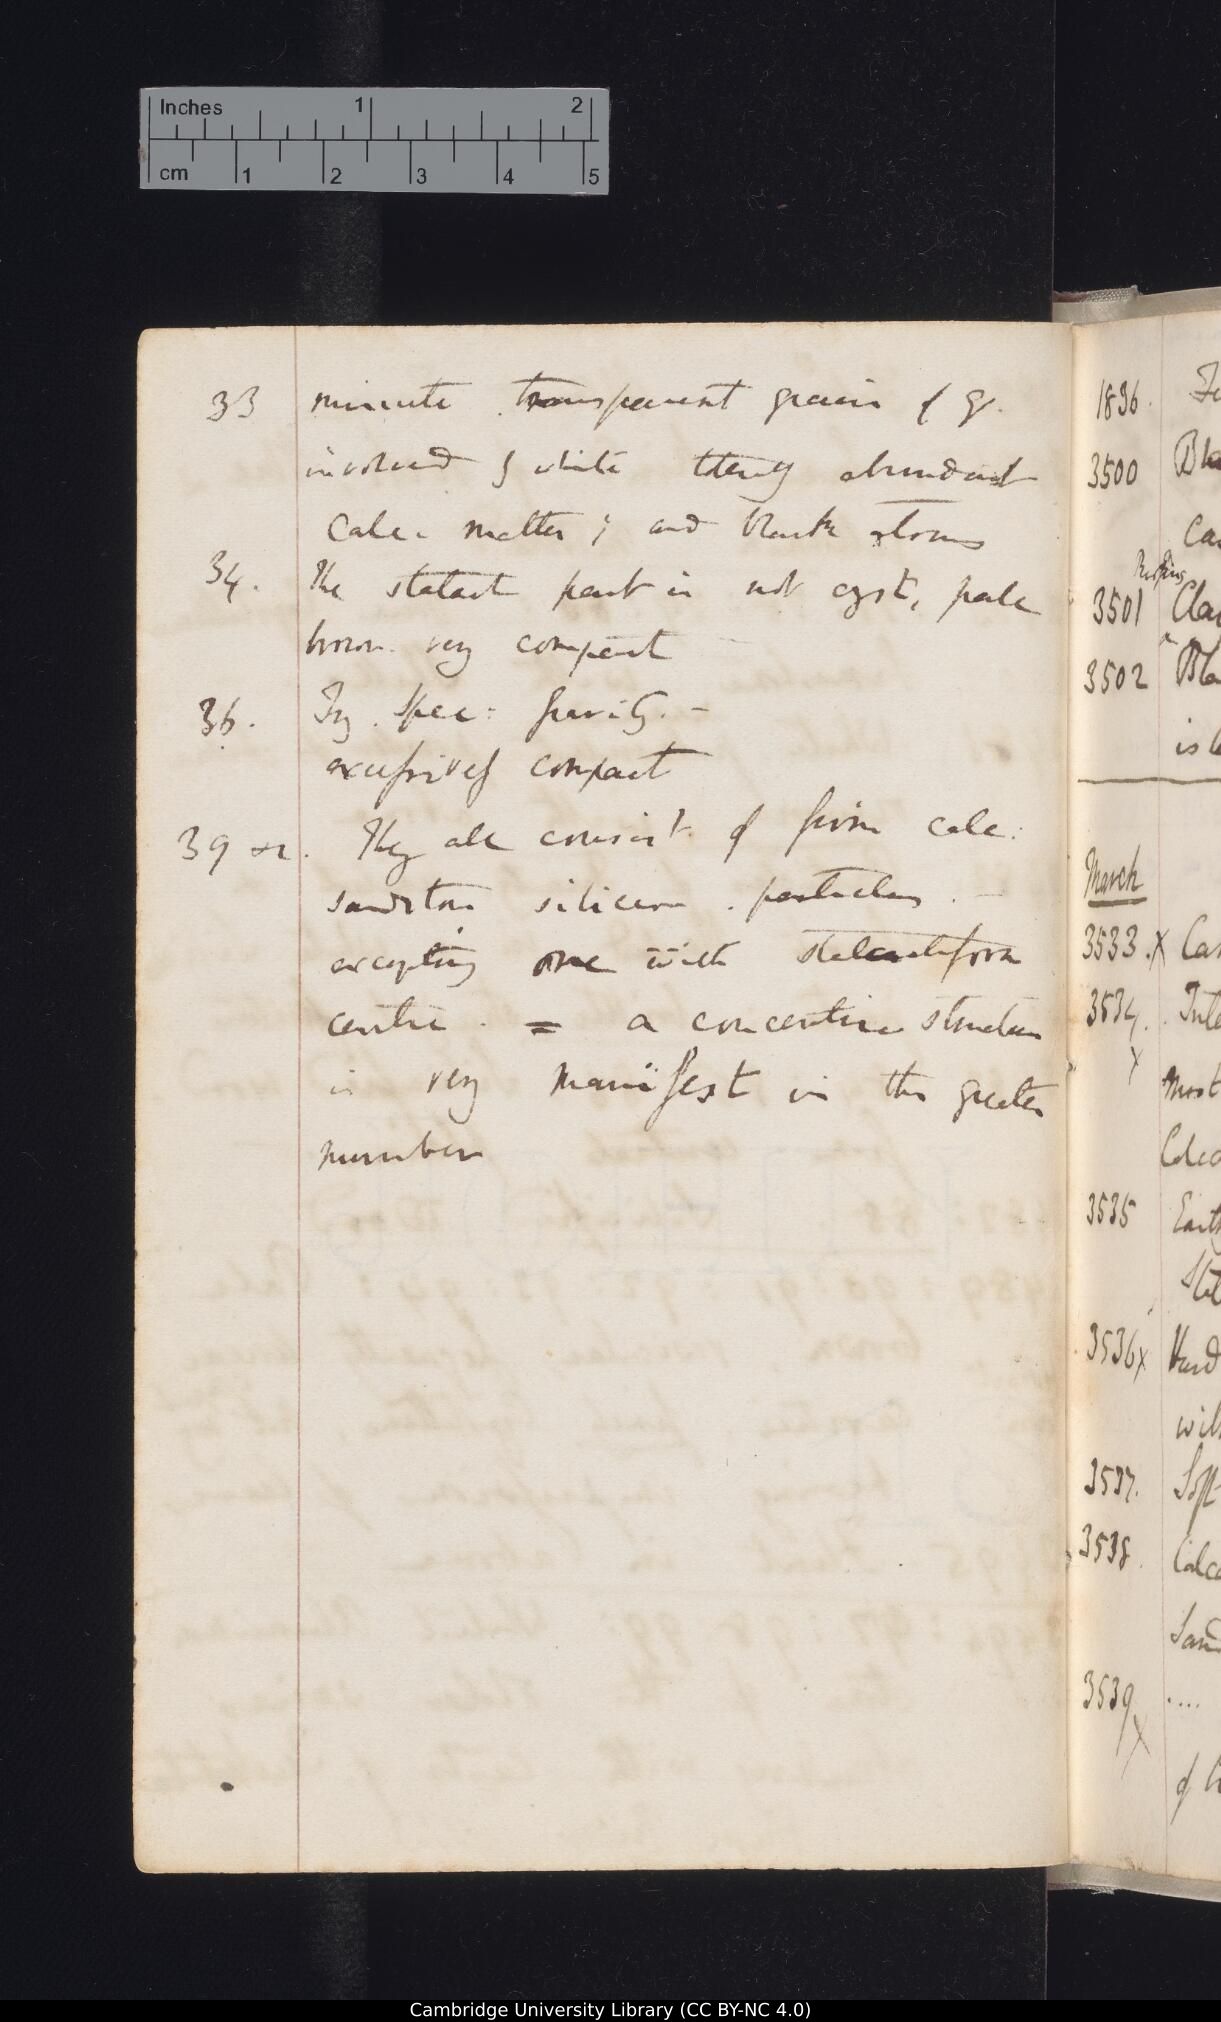 Inches 1 2
cm 1 2 3 4 5
33 minute transparent grains of
involved white abundant
Calc. matter; and black atoms
34. The stalact part is not cryst, pale
brown very compact
36. Try Spec: Gravity. —
excessively compact
39 They all consist of firm calc:
sandstone silicious particles. —
excepting one with stalactiform
centre. = a concentric structure
is very manifest in the greater
number
1836.
3500 Bla
Ca
3501 Cla
3502 Bla
is
March
3533. x Ca
3534. x Inte
Most
3535 Earth
3536 x Hard
wit
3537. Soft
3538 Calca
Sand
3539 x ....
of
Cambridge University Library (CC BY-NC 4.0)